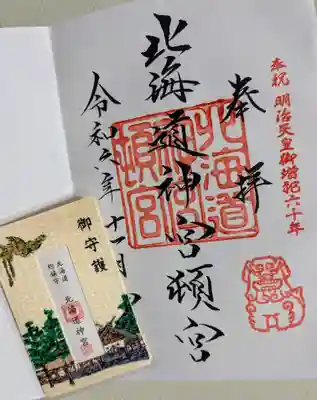 奉祝 明治天皇御増祀六十年
奉拝
北海道神宮頓宮
北海道
頓宮
令和六年十一月
御守護
北海道
総鎮守
北海道神宮